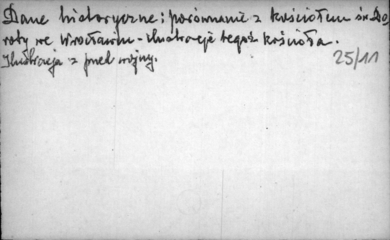 Dane historyczne: porównanie z kościołem św. Do
roty we Wrocławiu - ilustracje tegoż kościoła.
Ilustracja z przed wojny.
25/11